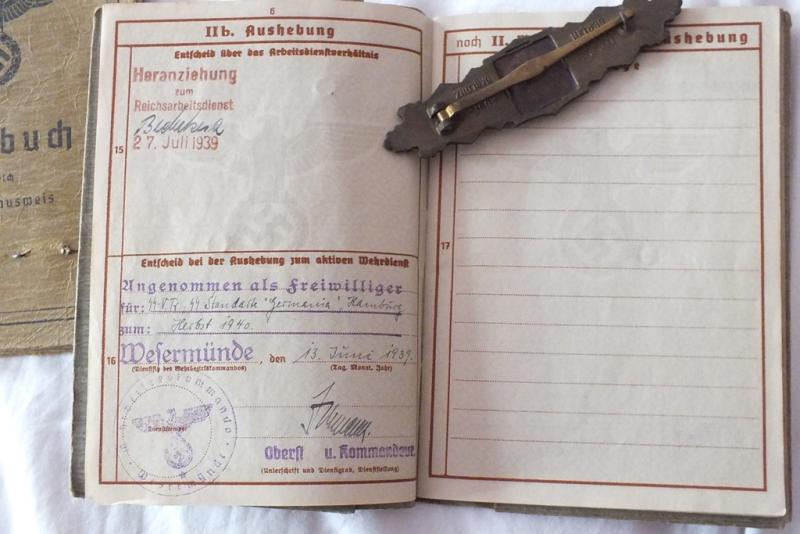 buch
ausweis
6
IIb. Aushebung
Entscheid über das Arbeitsdienstverhältnis
Heranziehung
zum
Reichsarbeitsdienst
15
27. Juli 1939
Entscheid bei der Aushebung zum aktiven Wehrdienst
Angenommen als Freiwilliger
für: SS-VT, SS Standarte "Germania", Hamburg
zum: Herbst 1940.
16 Wesermünde, den 13. Juni 1939.
(Dienstsitz des Wehrbezirkskommandos) (Tag, Monat, Jahr)
Wehrbezirkskommando
Wesermünde
Dienststempel
Oberst u. Kommandeur
(Unterschrift und Dienstgrad, Dienststellung)
noch II. Aushebung
17